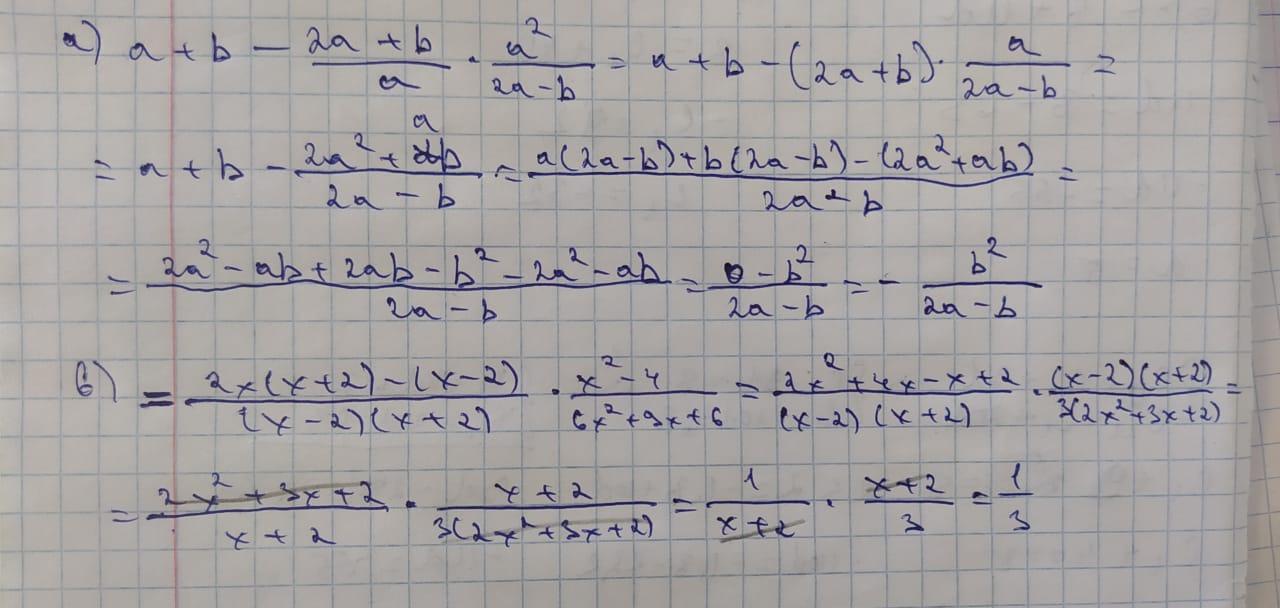 а) a + b − (2a + b)/a · a²/(2a − b) = a + b − (2a + b) · a/(2a − b) =
= a + b − (2a² + ab)/(2a − b) = (a(2a − b) + b(2a − b) − (2a² + ab))/(2a − b) =
= (2a² − ab + 2ab − b² − 2a² − ab)/(2a − b) = (0 − b²)/(2a − b) = − b²/(2a − b)
б) = (2x(x + 2) − (x − 2))/((x − 2)(x + 2)) · (x² − 4)/(6x² + 9x + 6) = (2x² + 4x − x + 2)/((x − 2)(x + 2)) · ((x − 2)(x + 2))/(3(2x² + 3x + 2)) =
= (2x² + 3x + 2)/(x + 2) · (x + 2)/(3(2x² + 3x + 2)) = 1/(x + 2) · (x + 2)/3 = 1/3